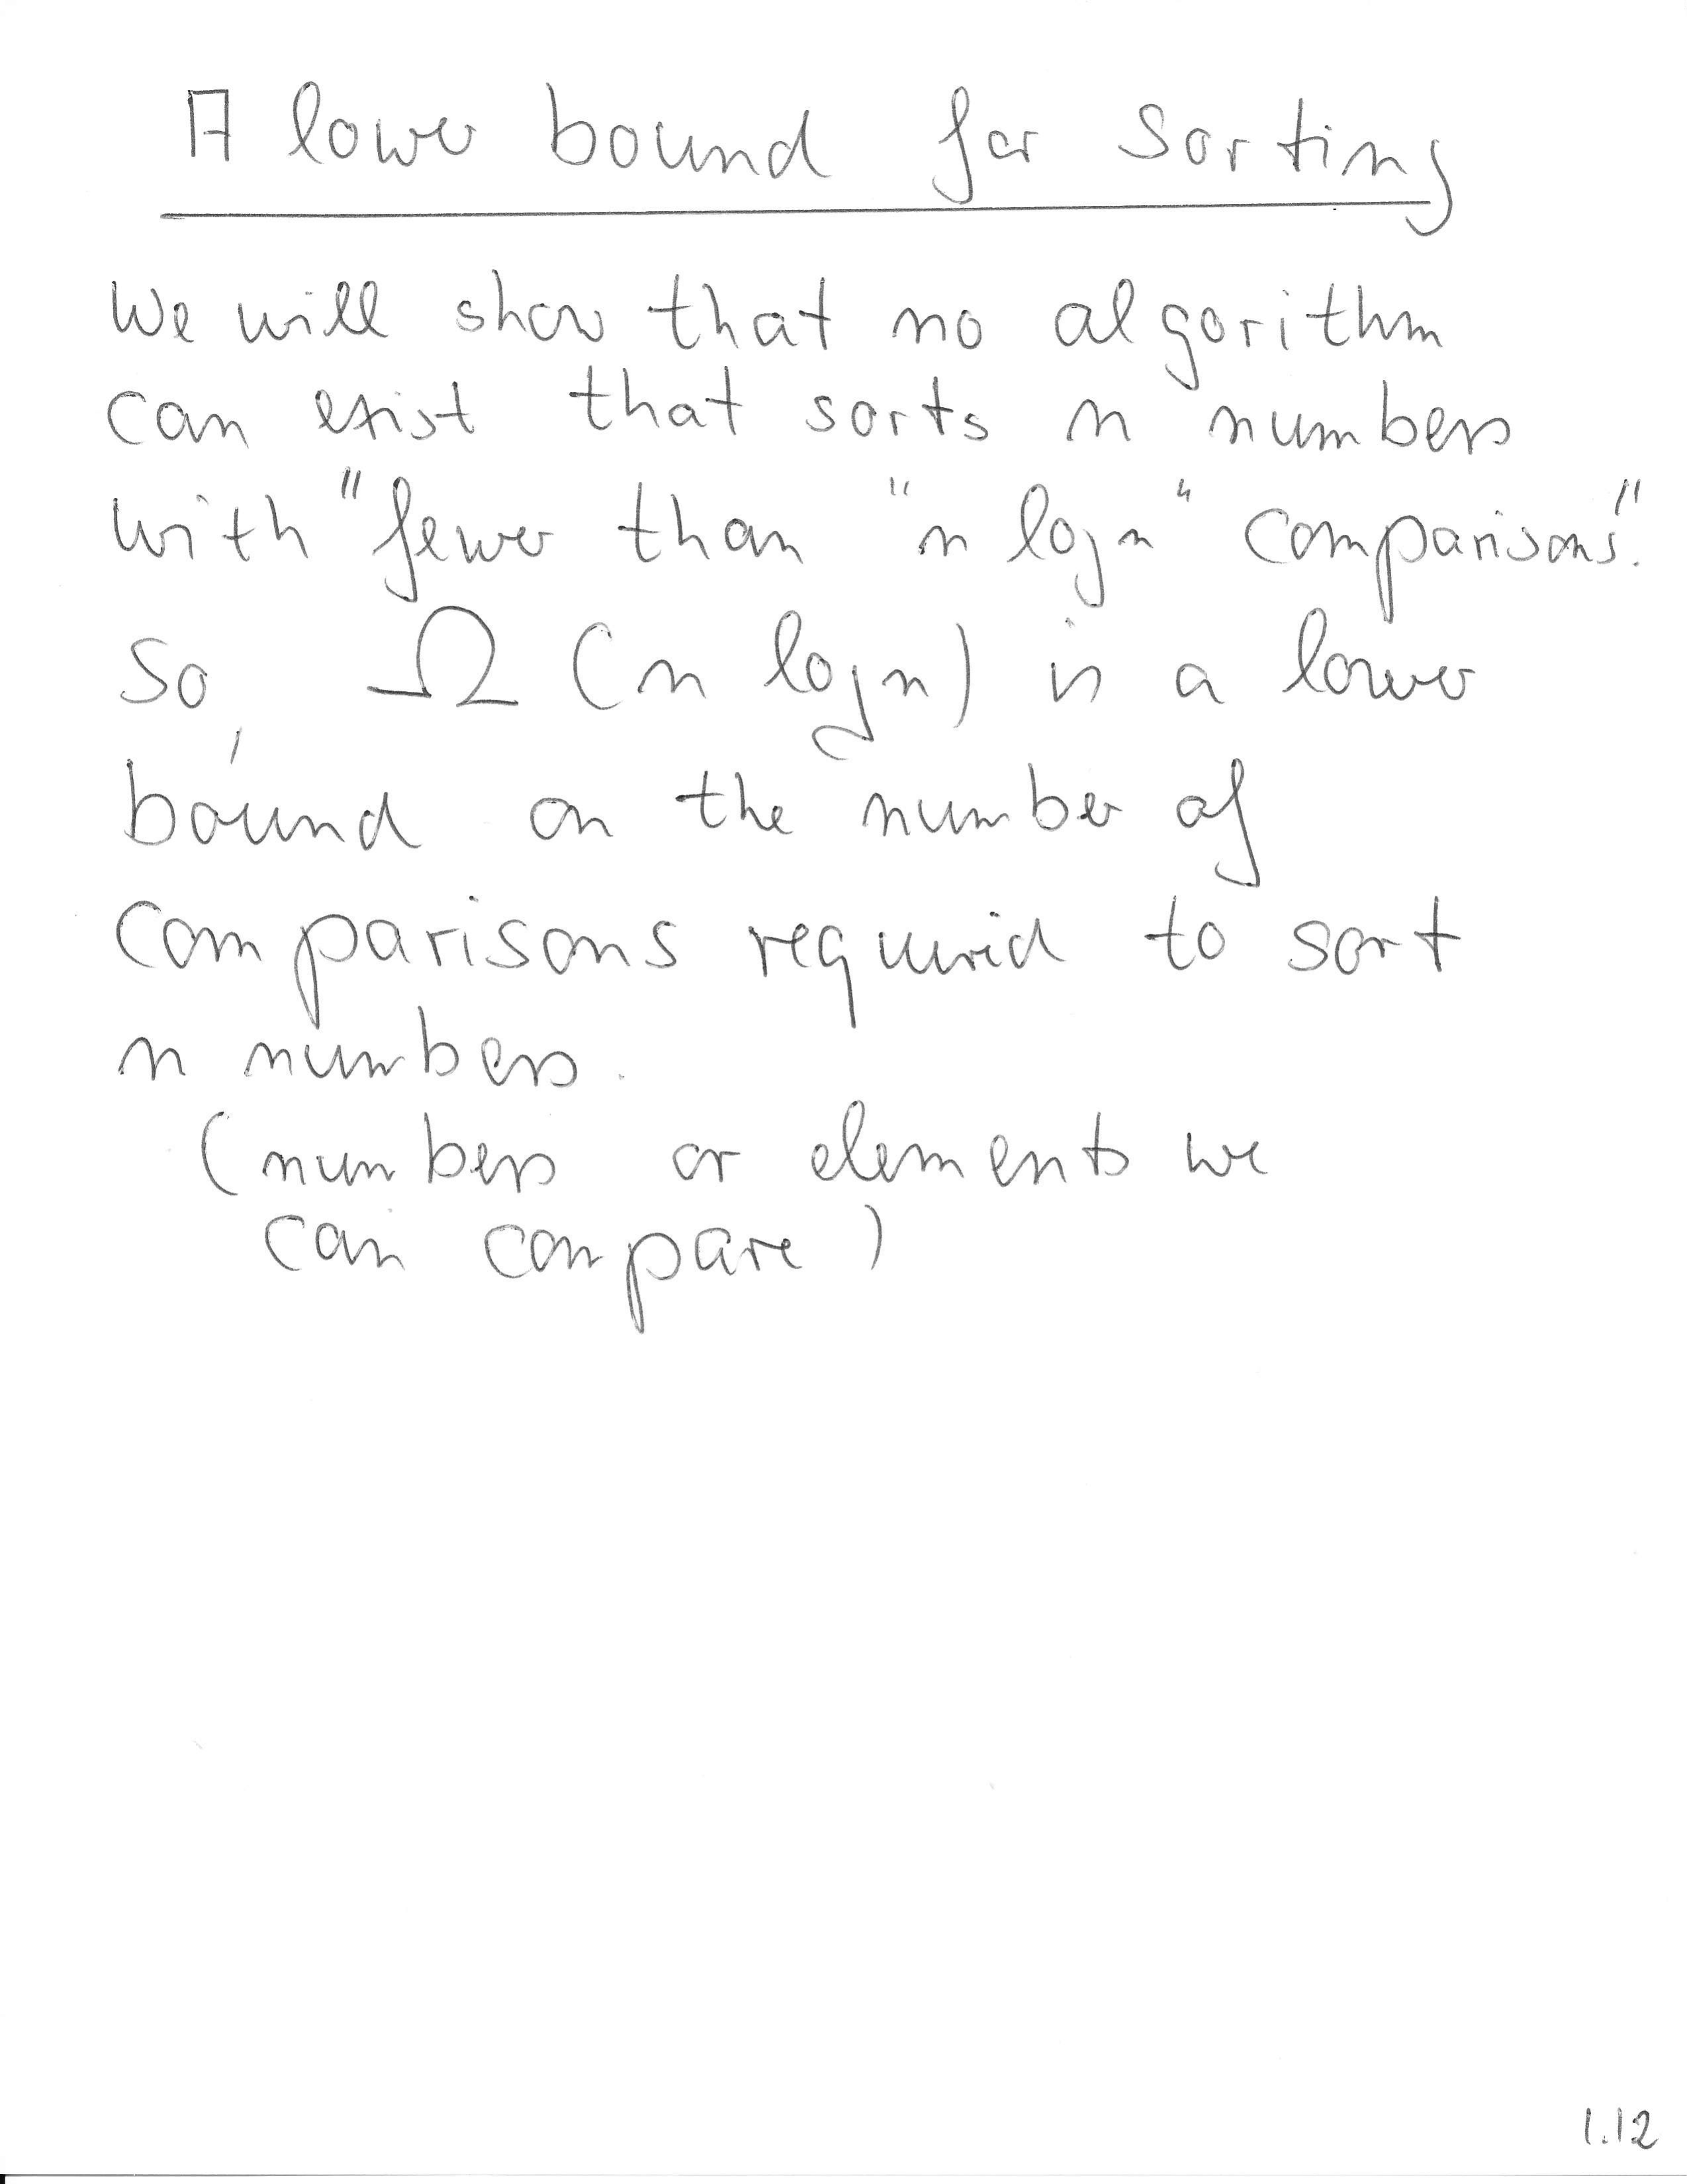 A lower bound for sorting
We will show that no algorithm
can exist that sorts n numbers
with "fewer than "n log n" comparisons".
So, Ω (n log n) is a lower
bound on the number of
comparisons required to sort
n numbers.
(numbers or elements we
can compare)
1.12